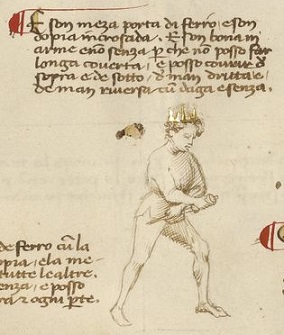 E son meza porta di ferro e son
dopia incrosada. E son bona in
arme e nō senza p̱ che nō posso far
longa coverta, e posso covrir d̄
sopra e de sotto, d̄ man dritta e
de man riversa cū daga e senza.
de ferro cū la
opia, e la me
tutte le altre.
enza, e posso
ogni p̱te.